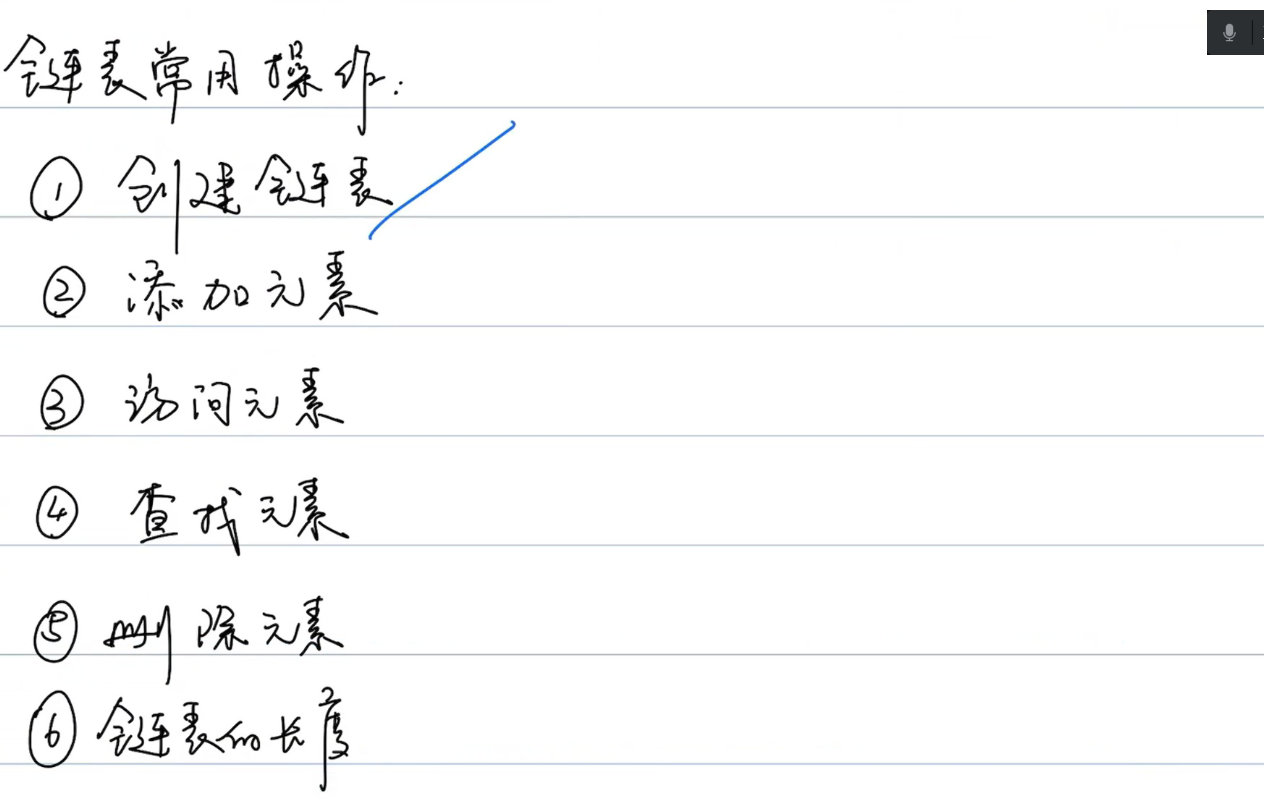 链表常用操作:
① 创建链表
② 添加元素
③ 访问元素
④ 查找元素
⑤ 删除元素
⑥ 链表的长度